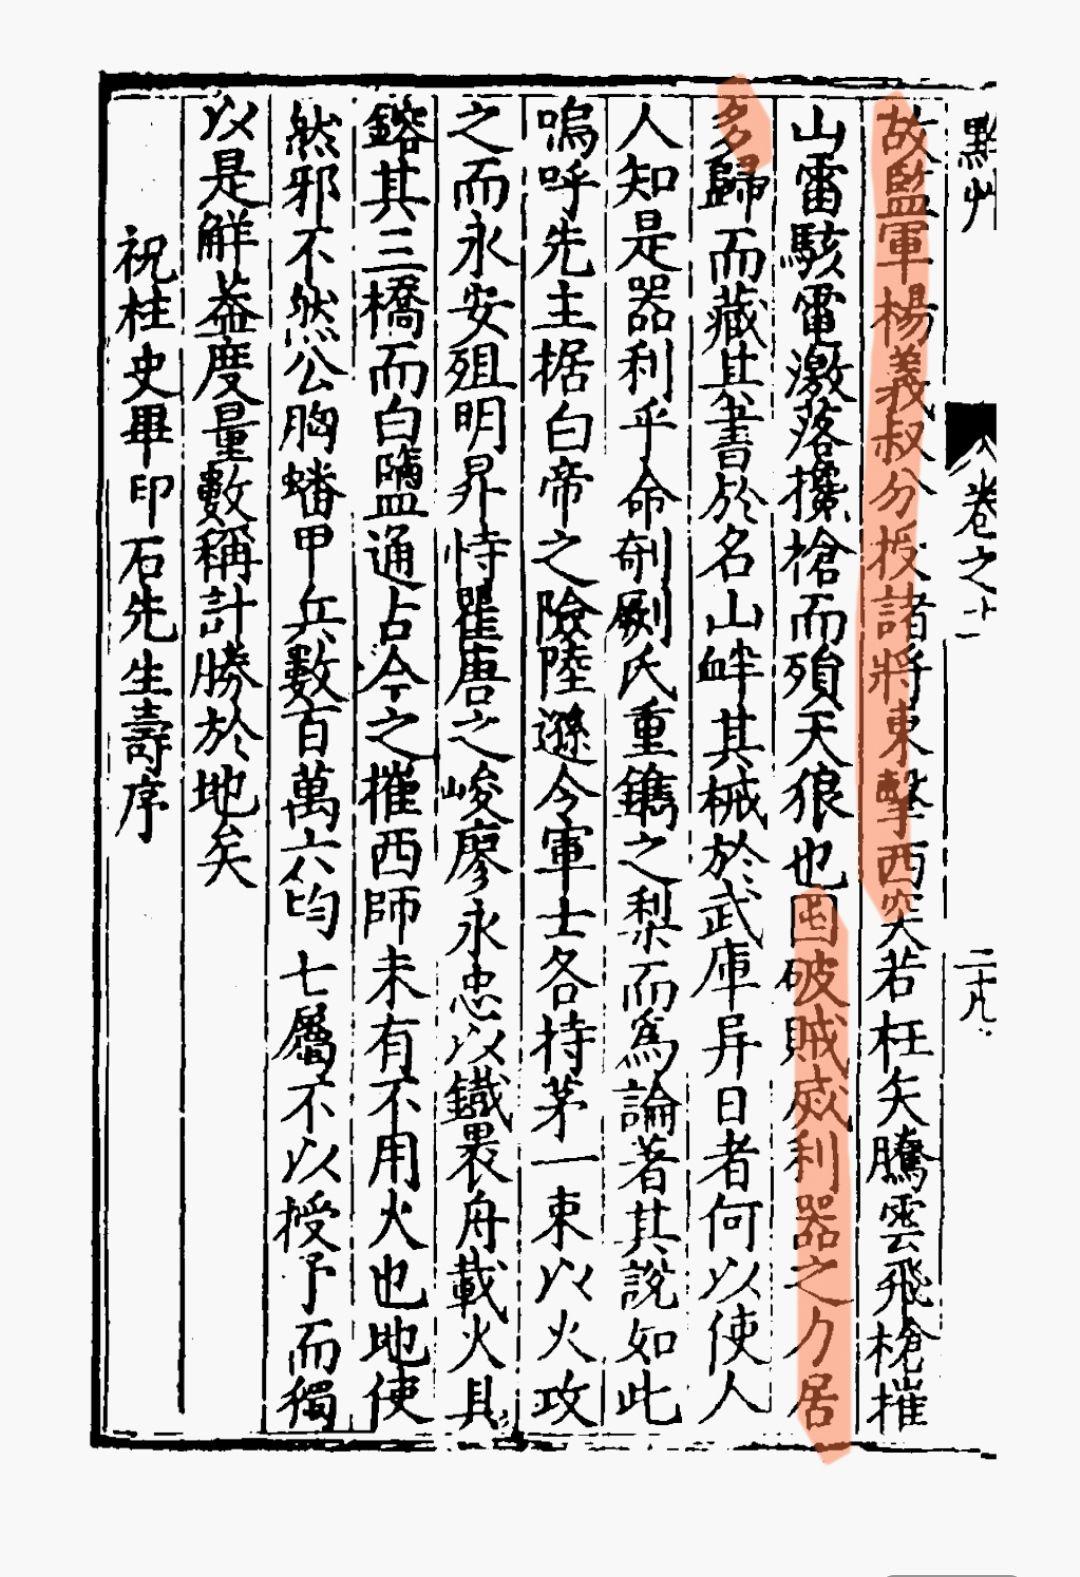 卷之十一
二十九
故監軍楊義叔分授諸將東擊西突若枉矢騰雲飛槍摧
山雷駭電激落攙槍而殞天狼也國破賊威利器之力居
多歸而藏其書於名山衅其械於武庫异日者何以使人
人知是器利乎命剞劂氏重鐫之梨而為論著其說如此
嗚呼先主据白帝之險陸遜令軍士各持茅一束以火攻
之而永安殂明昇恃瞿唐之峻廖永忠以鐵裹舟載火具
鎔其三橋而白鹽通占今之摧西師未有不用火也地使
然邪不然公胸蟠甲兵數百萬六均七屬不以授予而獨
以是解益度量數稱計勝於地矣
祝柱史畢印石先生壽序